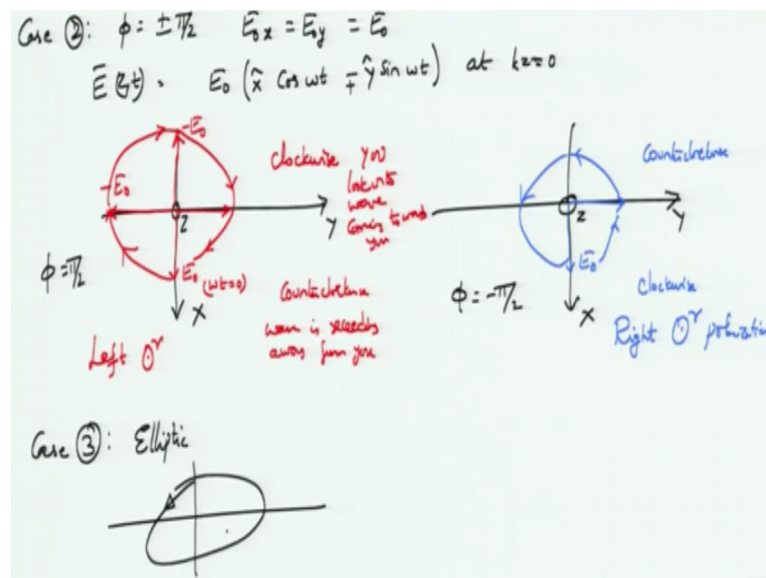 Case ②: φ = ± π/2 E̅0x = E̅0y = E̅0
E̅(z,t) = E̅0 (x̂ cos ωt ∓ ŷ sin ωt) at kz=0
-E0
-E0
Z
Y
E0 (ωt=0)
X
φ = π/2
Left Oʳ
Clockwise you
look into
wave
coming toward
you
Counterclockwise
wave is receding
away from you
Counterclockwise
Z
Y
E0
X
φ = -π/2
Clockwise
Right Oʳ polarization
Case ③: Elliptic